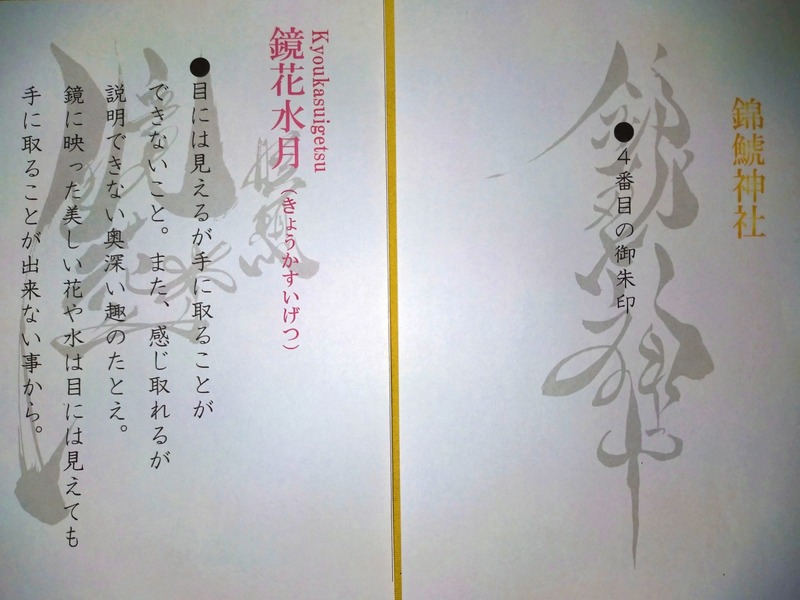 錦鯱神社
●4番目の御朱印
Kyoukasuigetsu
鏡花水月(きょうかすいげつ)
●目には見えるが手に取ることが
できないこと。また、感じ取れるが
説明できない奥深い趣のたとえ。
鏡に映った美しい花や水は目には見えても
手に取ることが出来ない事から。